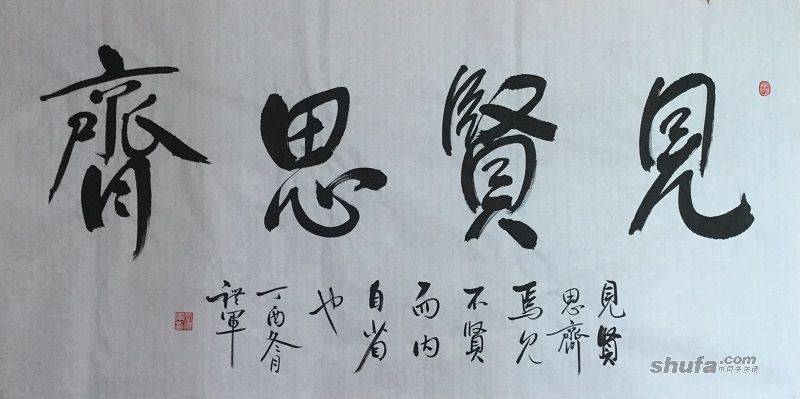 見賢思齊
見賢
思齊
焉見
不賢
而内
自省
也
丁酉冬月
禮軍
shufa.com